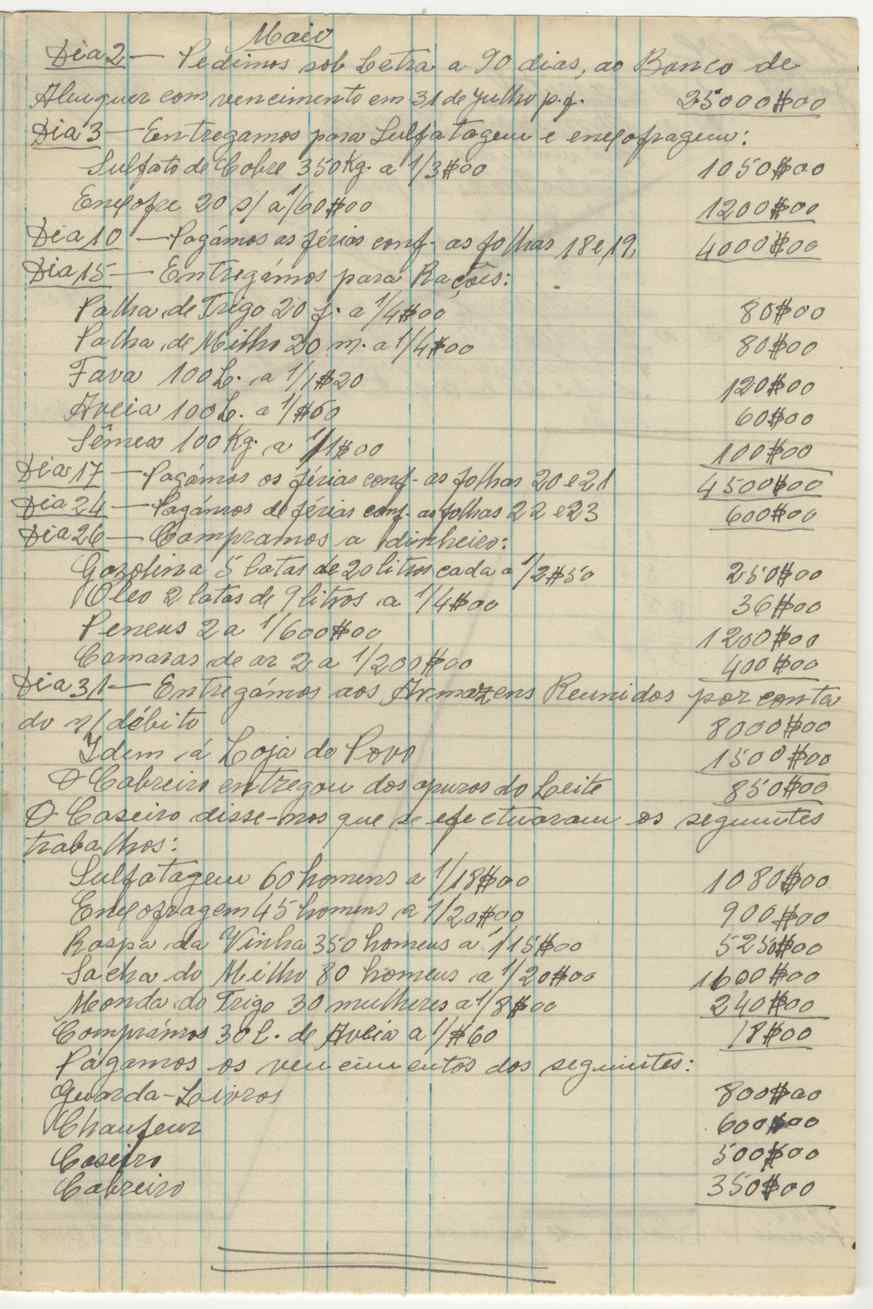 Maio
Dia 2 — Pedimos sob Letra a 90 dias, ao Banco de
Aluguer com vencimento em 31 de Julho p.f. 25000$00
Dia 3 — Entregamos para Sulfatagem e enxofragem:
Sulfato de Cobre 350 Kg. a 1/3$00 1050$00
Enxofre 20 s/ a 1/60$00 1200$00
Dia 10 — Pagámos as férias conf. as folhas 18 e 19, 4000$00
Dia 15 — Entregámos para Rações:
Palha de Trigo 20 f. a 1/4$00 80$00
Palha de Milho 20 m. a 1/4$00 80$00
Fava 100 L. a 1/1$20 120$00
Aveia 100 L. a 1/$60 60$00
Sêmeas 100 Kg. a 1/1$00 100$00
Dia 17 — Pagámos os férias conf. as folhas 20 e 21 4500$00
Dia 24 — Pagámos de férias conf. as folhas 22 e 23 600$00
Dia 26 — Compramos a dinheiro:
Gazolina 5 latas de 20 litros cada a 1/2$50 250$00
Oleo 2 latas de 9 litros a 1/4$00 36$00
Peneus 2 a 1/600$00 1200$00
Camaras de ar 2 a 1/200$00 400$00
Dia 31 — Entregámos aos Armazens Reunidos por conta
do n/ débito 8000$00
Idem á Loja do Povo 1500$00
O Cabreiro entregou dos apuros do Leite 850$00
O Caseiro disse-nos que se efectuaram os seguintes
trabalhos:
Sulfatagem 60 homens a 1/18$00 1080$00
Enxofragem 45 homens a 1/20$00 900$00
Raspa da Vinha 350 homens a 1/15$00 5250$00
Sacha do Milho 80 homens a 1/20$00 1600$00
Monda do Trigo 30 mulheres a 1/8$00 240$00
Comprámos 30 L. de Aveia a 1/$60 18$00
Págamos os vencimentos dos seguintes:
Guarda-Livros 800$00
Chaufeur 600$00
Caseiro 500$00
Cabreiro 350$00